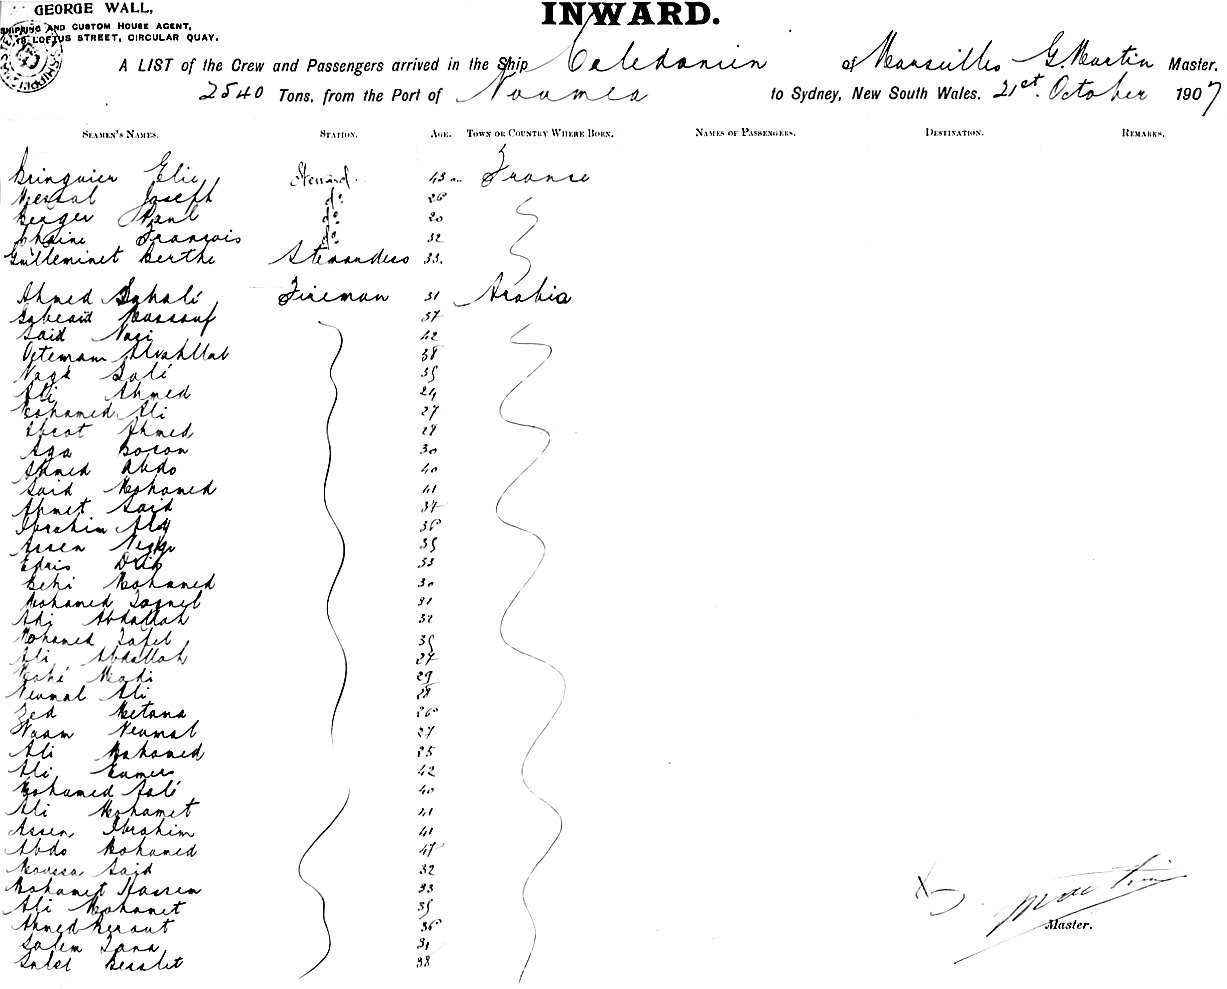 INWARD.
GEORGE WALL,
SHIPPING AND CUSTOM HOUSE AGENT,
LOFTUS STREET, CIRCULAR QUAY.
A LIST of the Crew and Passengers arrived in the Ship Caledonien of Marseilles G. Martin Master.
2540 Tons, from the Port of Noumea to Sydney, New South Wales. 21st. October 1907
SEAMEN'S NAMES. STATION. AGE. TOWN OR COUNTRY WHERE BORN. NAMES OF PASSENGERS. DESTINATION. REMARKS.
Bringuier Elie Steward 43 France
Joseph do 26
Berger Paul do 20
Chaine François do 32
Guilleminet Berthe Stewardess 33.
Ahmed Fireman 31 Arabia
37
Said Nagi 42
38
Nagi Salé 35
Ali Ahmed 24
Mohamed Ali 27
Ahmed 28
Aga 30
Ahmed Abdo 40
Said Mohamed 41
Ahmet Said 37
Ibrahim Aly 36
Assen 35
Edris 33
Behi Mohamed 30
Mohamed 31
Adi Abdallah 32
Mohamed 35
Ali Abdallah 27
Madi 29
Neumal Ali 28
Zed Metana 26
Naam Neumal 27
Ali Mohamed 25
Ali 42
Mohamed Salé 40
Ali Mohamet 41
Assen Ibrahim 41
Abdo Mohamed 47
Moussa Said 32
Mohamet Hassen 33
Ali Mohamet 35
Ahmed 36
Salem 31
38
Martin
Master.